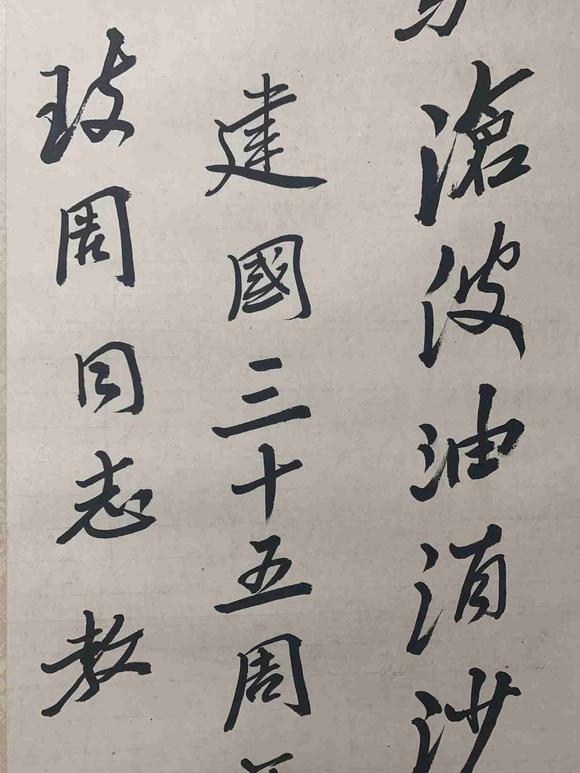 滄波油消沙
建國三十五周
周同志教